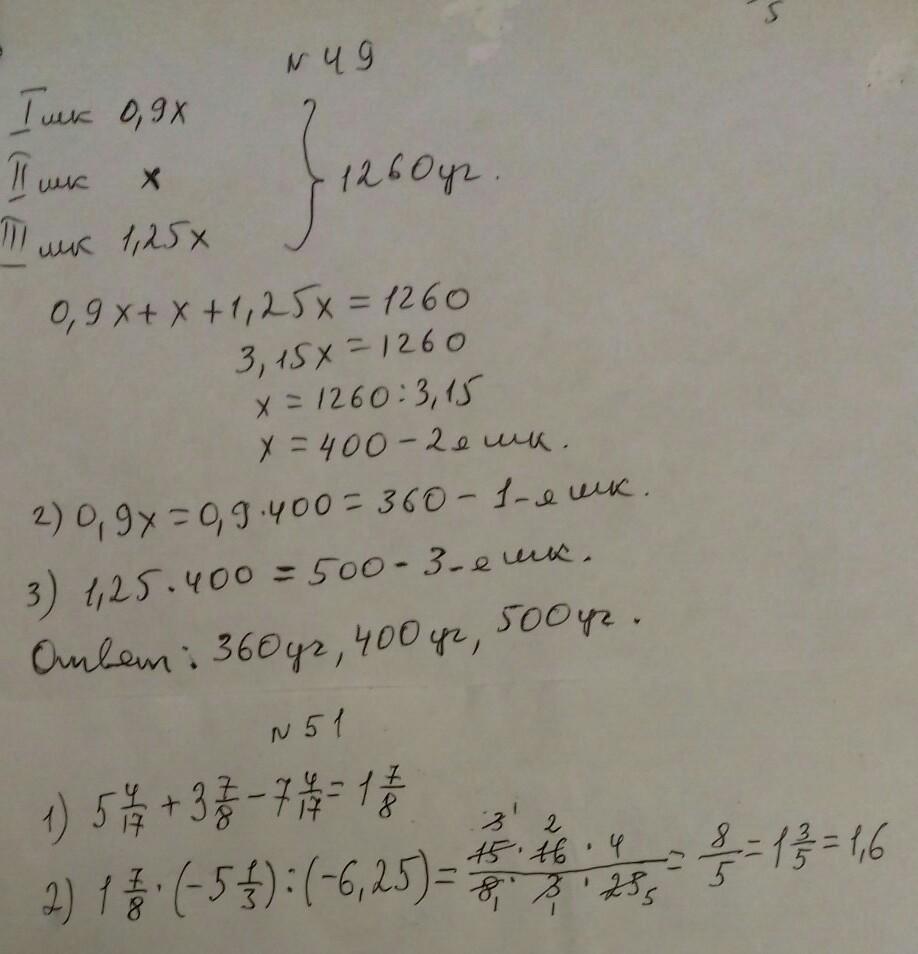 5
N 49
I шк 0,9x
II шк x } 1260 уч.
III шк 1,25x
0,9x + x + 1,25x = 1260
3,15x = 1260
x = 1260 : 3,15
x = 400 - 2я шк.
2) 0,9x = 0,9 · 400 = 360 - 1-я шк.
3) 1,25 · 400 = 500 - 3-я шк.
Ответ: 360 уч, 400 уч, 500 уч.
N 51
1) 5 4/17 + 3 7/8 - 7 4/17 = 1 7/8
2) 1 7/8 · (-5 1/3) : (-6,25) = 15 · 16 · 4 / 8 · 3 · 25 = 8/5 = 1 3/5 = 1,6